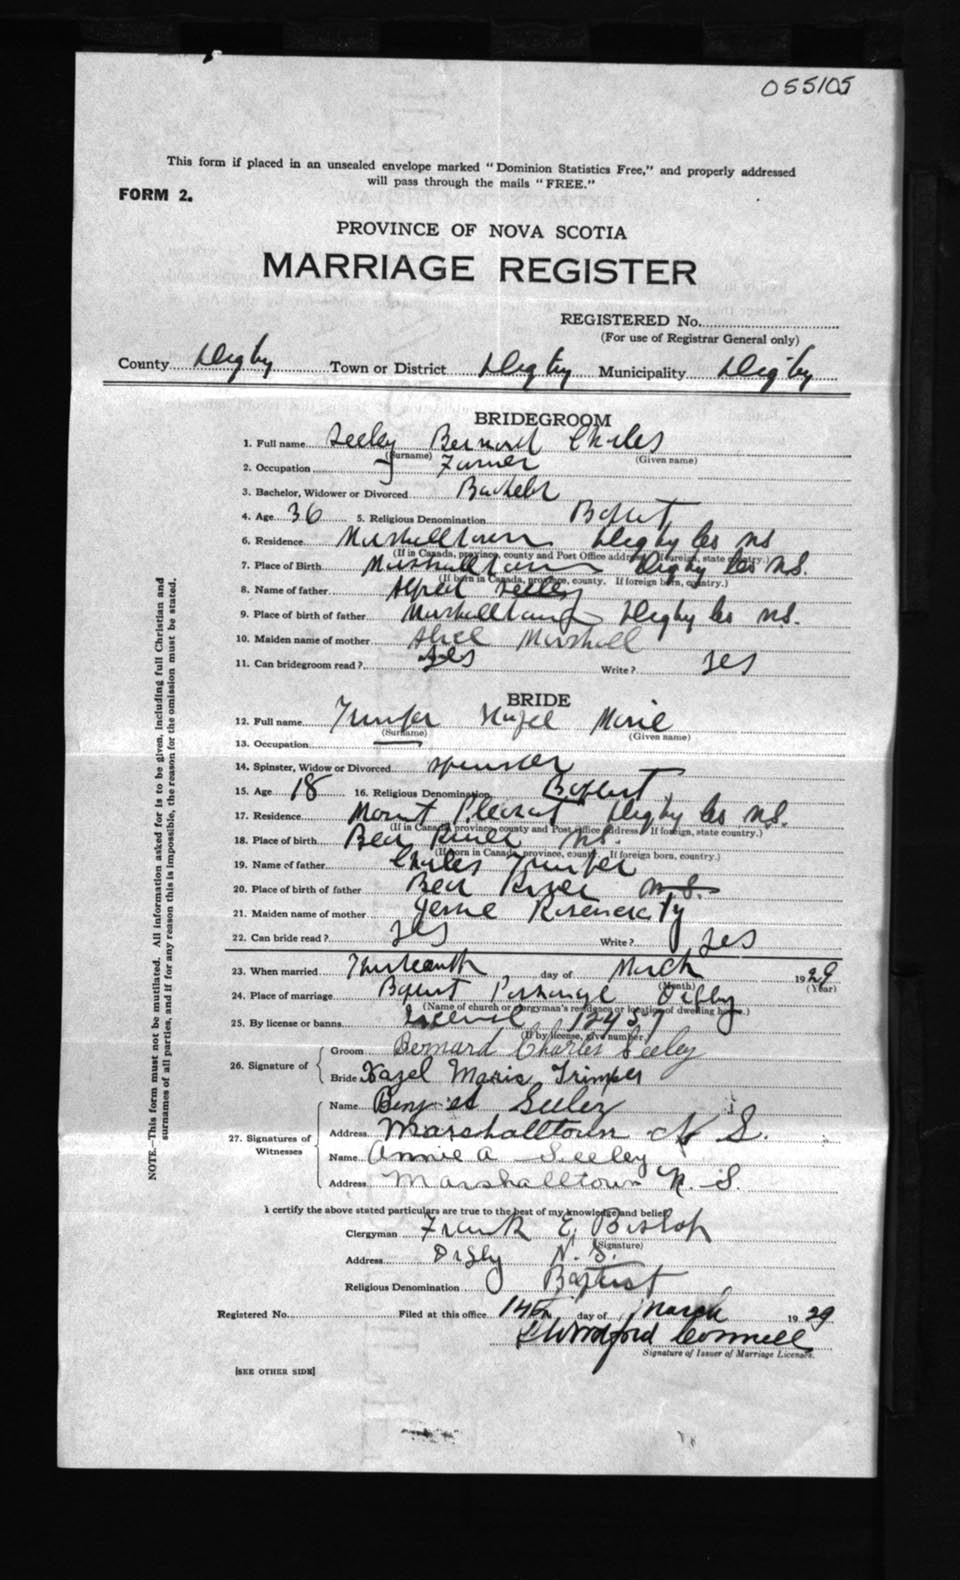 055105
This form if placed in an unsealed envelope marked "Dominion Statistics Free," and properly addressed
will pass through the mails "FREE."
FORM 2.
PROVINCE OF NOVA SCOTIA
MARRIAGE REGISTER
REGISTERED No.
(For use of Registrar General only)
County Digby Town or District Digby Municipality Digby
BRIDEGROOM
1. Full name Seeley Bernard Charles
(Surname) (Given name)
2. Occupation Farmer
3. Bachelor, Widower or Divorced Bachelor
4. Age 36 5. Religious Denomination Baptist
6. Residence Marshalltown Digby Co NS
(If in Canada, province, county and Post Office address. If foreign, state country.)
7. Place of Birth Marshalltown Digby Co N.S.
(If born in Canada, province, county. If foreign born, country.)
8. Name of father Alfred Seeley
9. Place of birth of father Marshalltown Digby Co N.S.
10. Maiden name of mother Alice Marshall
11. Can bridegroom read? Yes Write? Yes
BRIDE
12. Full name Trimper Hazel Marie
(Surname) (Given name)
13. Occupation
14. Spinster, Widow or Divorced Spinster
15. Age 18 16. Religious Denomination Baptist
17. Residence Mount Pleasant Digby Co N.S.
(If in Canada, province, county and Post Office address. If foreign, state country.)
18. Place of birth Bear River N.S.
(If born in Canada, province, county. If foreign born, country.)
19. Name of father Charles Trimper
20. Place of birth of father Bear River N.S.
21. Maiden name of mother Jessie
22. Can bride read? Yes Write? Yes
23. When married Thirteenth day of March 1929
(Month) (Year)
24. Place of marriage Baptist Parsonage Digby
(Name of church or clergyman's residence or location of dwelling home.)
25. By license or banns License 12457
(If by license, give number)
26. Signature of
Groom Bernard Charles Seeley
Bride Hazel Marie Trimper
27. Signatures of Witnesses
Name Seeley
Address Marshalltown N S.
Name Annie A Seeley
Address Marshalltown N. S.
I certify the above stated particulars are true to the best of my knowledge and belief.
Clergyman Frank E. Bishop
(Signature)
Address Digby N. S.
Religious Denomination Baptist
Registered No. Filed at this office 14th day of March 1929
Signature of Issuer of Marriage Licenses.
[SEE OTHER SIDE]
NOTE.—This form must not be mutilated. All information asked for is to be given, including full Christian and
surnames of all parties, and if for any reason this is impossible, the reason for the omission must be stated.